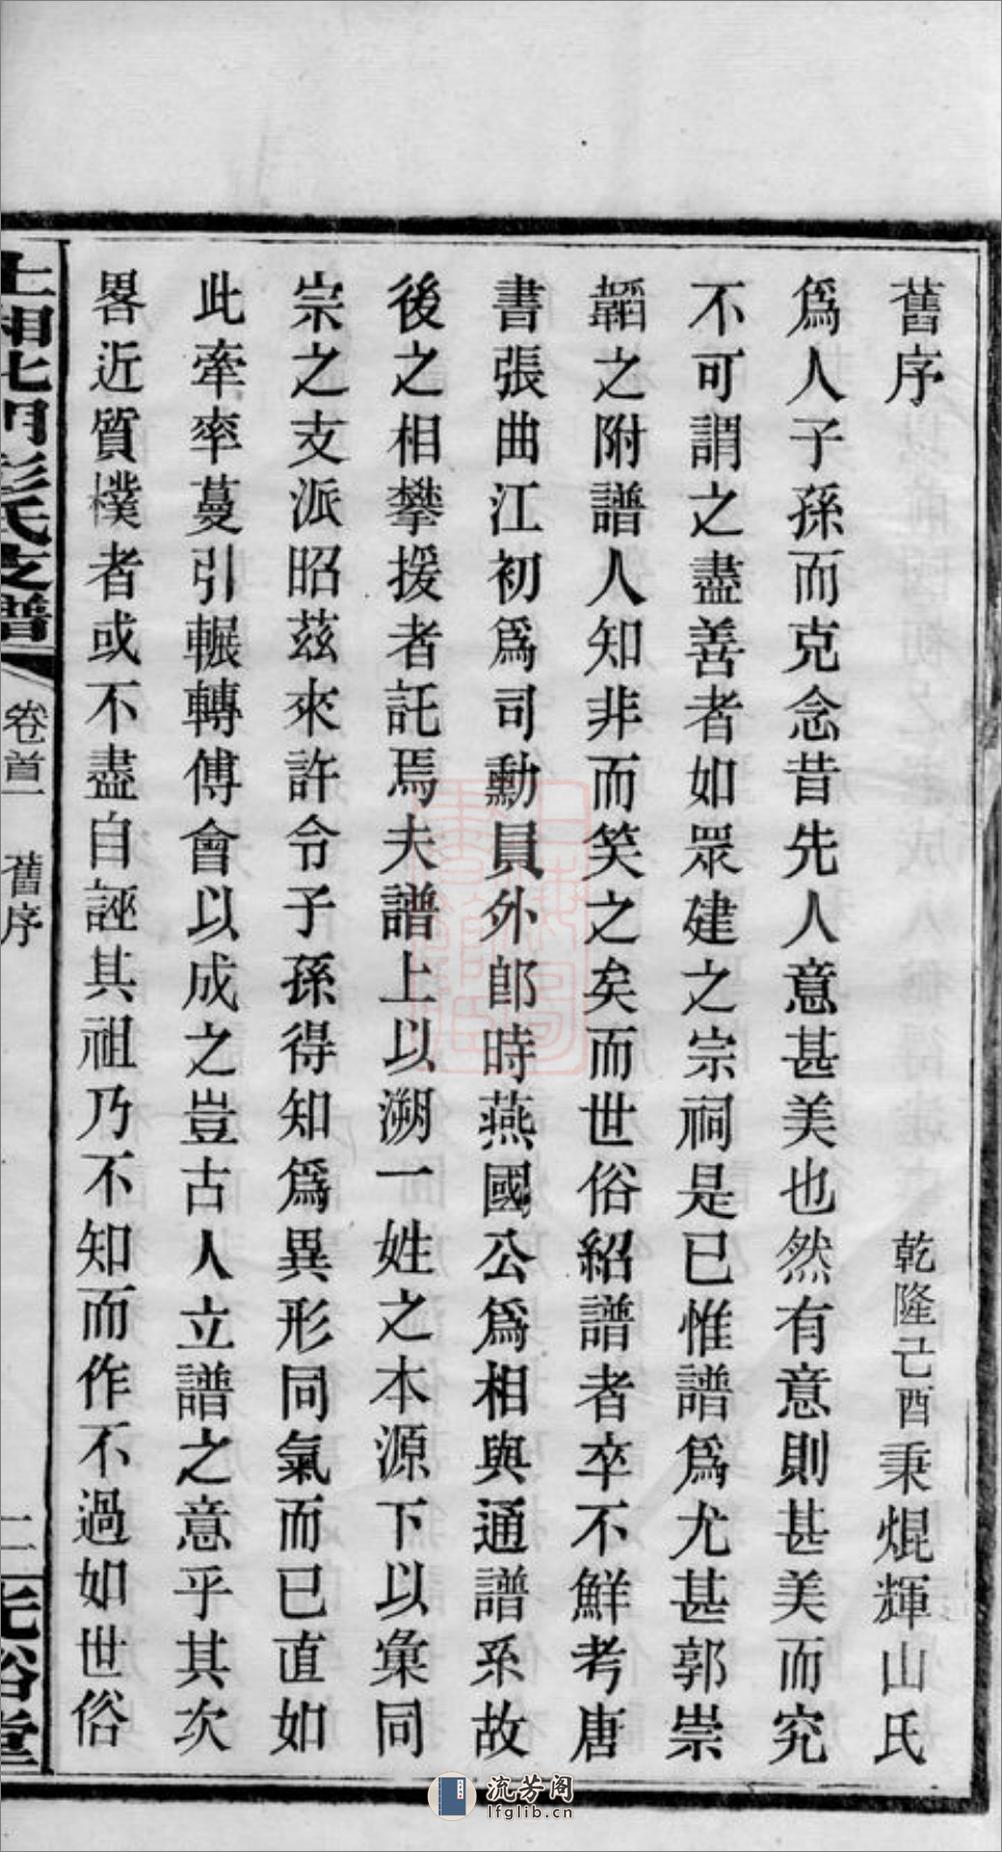 舊序 乾隆己酉秉焜輝山氏
爲人子孫而克念昔先人意甚美也然有意則甚美而究
不可謂之盡善者如眾建之宗祠是已惟譜爲尤甚郭崇
韜之附譜人知非而笑之矣而世俗紹譜者卒不鮮考唐
書張曲江初爲司勳員外郎時燕國公爲相與通譜系故
後之相攀援者託焉夫譜上以溯一姓之本源下以彙同
宗之支派昭茲來許令子孫得知爲異形同氣而已直如
此牽率蔓引輾轉傅會以成之豈古人立譜之意乎其次
畧近質樸者或不盡自誣其祖乃不知而作不過如世俗
上湘北門彭氏支譜 卷首一 舊序 二 光裕堂
流芳阁
lfglib.cn